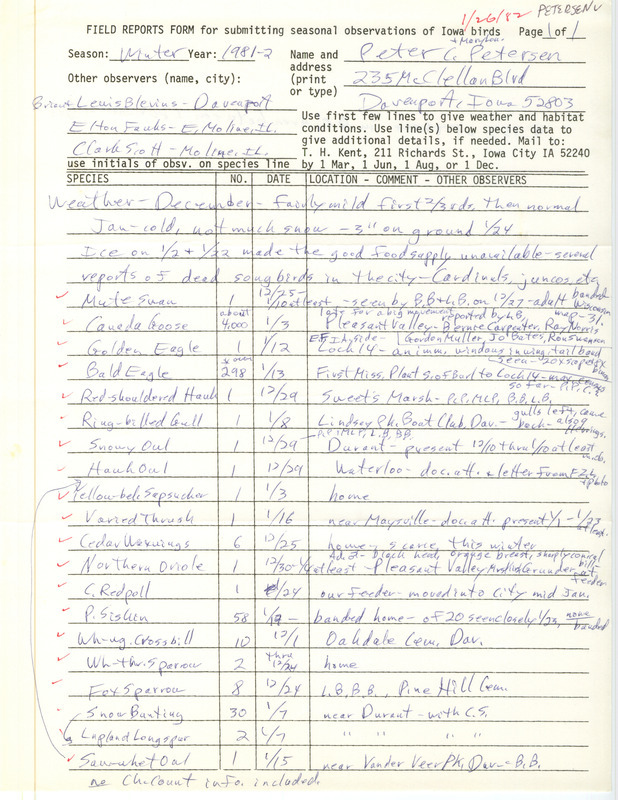 1/26/82 PETERSEN
FIELD REPORTS FORM for submitting seasonal observations of Iowa birds Page 1 of 1
Season: Winter Year: 1981-2 Name and Peter C. Petersen
+ Marylou
address 235 McClellan Blvd
Other observers (name, city): (print
or type) Davenport, Iowa 52803
Lewis Blevins - Davenport
Elton Fawks - E. Moline, IL.
Clark Scott - Moline, IL.
use initials of obsv. on species line
Use first few lines to give weather and habitat
conditions. Use line(s) below species data to
give additional details, if needed. Mail to:
T. H. Kent, 211 Richards St., Iowa City IA 52240
by 1 Mar, 1 Jun, 1 Aug, or 1 Dec.
SPECIES NO. DATE LOCATION - COMMENT - OTHER OBSERVERS
Weather - December - Fairly mild first 2/3rds, then normal
Jan - cold, not much snow - 3" on ground 1/24
Ice on 1/2 + 1/22 made the good food supply unavailable - several
reports of dead songbirds in the city - Cardinals, juncos, etc.
Mute Swan 1 12/25- 1/10 at least - seen by B.B + L.B. on 12/27 - adult banded Wisconsin
Canada Goose about 4,000 1/3 late for a big movement reported by L.B. Pleasant Valley - Bernie Carpenter, Ray Norris
Golden Eagle 1 1/12 Loch 14 - an imm. windows in wing, tail band Gordon Muller, Jo Bates, Ron Swanson
Bald Eagle 298 1/13 First Miss. Plant S. of Burl to Loch 14 - so far - P.C.P.
Red-shouldered Hawk 1 12/29 Sweets Marsh - PCP, MLP, B.B, L.B.
Ring-billed Gull 1 1/8 Lindsey Pk. Boat Club, Dav. - gulls left, came back - also Herrings.
Snowy Owl 1 12/29 PCP, MLP, L.B, BB Durant - present 12/10 thru 1/10 at least
Hawk Owl 1 12/29 Waterloo - doc. att. + letter from F.Z.L. + photo
Yellow-bel. Sapsucker 1 1/3 home
Varied Thrush 1 1/16 near Maysville - doc att. present 1/1 - 1/23 at least
Cedar Waxwings 6 12/25 home - scarce this winter
Northern Oriole 1 12/30 - 1/4 at least - Pleasant Valley Ad. ♂ - black head, orange breast, sharply conical bill - at feeder
C. Redpoll 1 1/24 our feeder - moved into City mid Jan.
P. Siskin 58 1/9 - banded home - of 20 seen closely 1/23, none banded
Wh-wg. Crossbill 10 12/1 Oakdale Cem, Dav.
Wh-thr. Sparrow 2 thru 12/24 home
Fox Sparrow 8 12/24 L.B, B.B., Pine Hill Cem.
Snow Bunting 30 1/7 near Durant - with C.S.
Lapland Longspur 2 1/7 " " " "
Saw-whet Owl 1 1/15 near Vander Veer Pk, Dav - B.B.
no Ch. Count info. included.